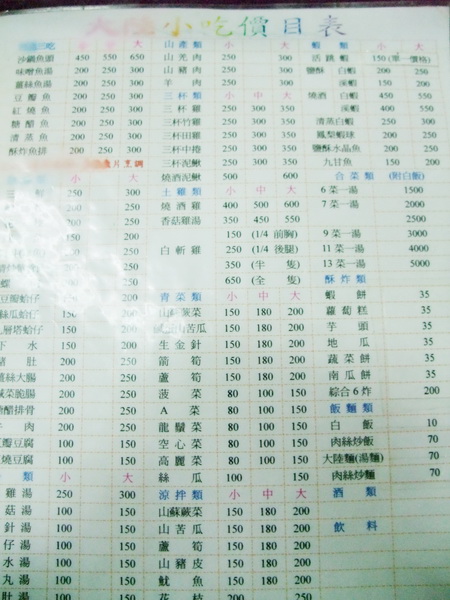 大陸小吃價目表
大
沙鍋魚頭 450 550 650
味噌魚湯 200 250 300
薑絲魚湯 200 250 300
豆瓣魚 200 250 300
紅燒魚 200 250 300
糖醋魚 200 250 300
清蒸魚 200 250 300
酥炸魚排 200 250 300
小 大
250 300
250
150 200
200 250
200 250
200 250
豆瓣蛤仔 200 250
絲瓜蛤仔 200 250
九層塔蛤仔 200 250
下水 150 200
豬肚 200 250
薑絲大腸 200 250
鹹菜脆腸 200 250
糖醋排骨 200 250
牛肉 200 250
豆瓣豆腐 100 150
紅燒豆腐 100 150
類 小 大
雞湯 250 300
菇湯 100 150
針湯 100 150
仔湯 100 150
水湯 100 150
丸湯 100 150
肚湯 100 150
山產類 小 大
山羌肉 250 300
山豬肉 250 300
羊肉 250 300
三杯類 小 中 大
三杯雞 250 300 350
三杯竹雞 250 300 350
三杯田雞 250 300 350
三杯中捲 250 300 350
三杯泥鰍 250 300 350
燒酒泥鰍 500 600
土雞類 小 中 大
燒酒雞 400 500 600
香菇雞湯 350 450 550
150 (1/4前胸)
白斬雞 250 (1/4後腿)
350 (半隻)
650 (全隻)
青菜類 小 中 大
山蘇蕨菜 150 180 200
山苦瓜 150 180 200
生金針 150 180 200
箭筍 150 180 200
蘆筍 150 180 200
菠菜 80 100 150
A菜 80 100 150
龍鬚菜 80 100 150
空心菜 80 100 150
高麗菜 80 100 150
絲瓜 100 150
涼拌類 小 中 大
山蘇蕨菜 150 180 200
山苦瓜 150 180 200
蘆筍 150 180 200
山豬皮 150 180 200
魷魚 150 180 200
花枝 200
蝦類 小 大
活跳蝦 150 (單一價格)
鹽酥 白蝦 200 250
溪蝦 150 200
燒酒 白蝦 450
溪蝦 400 550
清蒸白蝦 250 300
鳳梨蝦球 200 250
鹽酥水晶魚 200 250
九甘魚 150 200
合菜類 (附白飯)
6菜一湯 1500
7菜一湯 2000
2500
9菜一湯 3000
11菜一湯 4000
13菜一湯 5000
酥炸類
蝦餅 35
蘿蔔糕 35
芋頭 35
地瓜 35
蔬菜餅 35
南瓜餅 35
綜合6炸 200
飯麵類
白飯 10
肉絲炒飯 70
大陸麵(湯麵) 70
肉絲炒麵 70
酒類
飲料